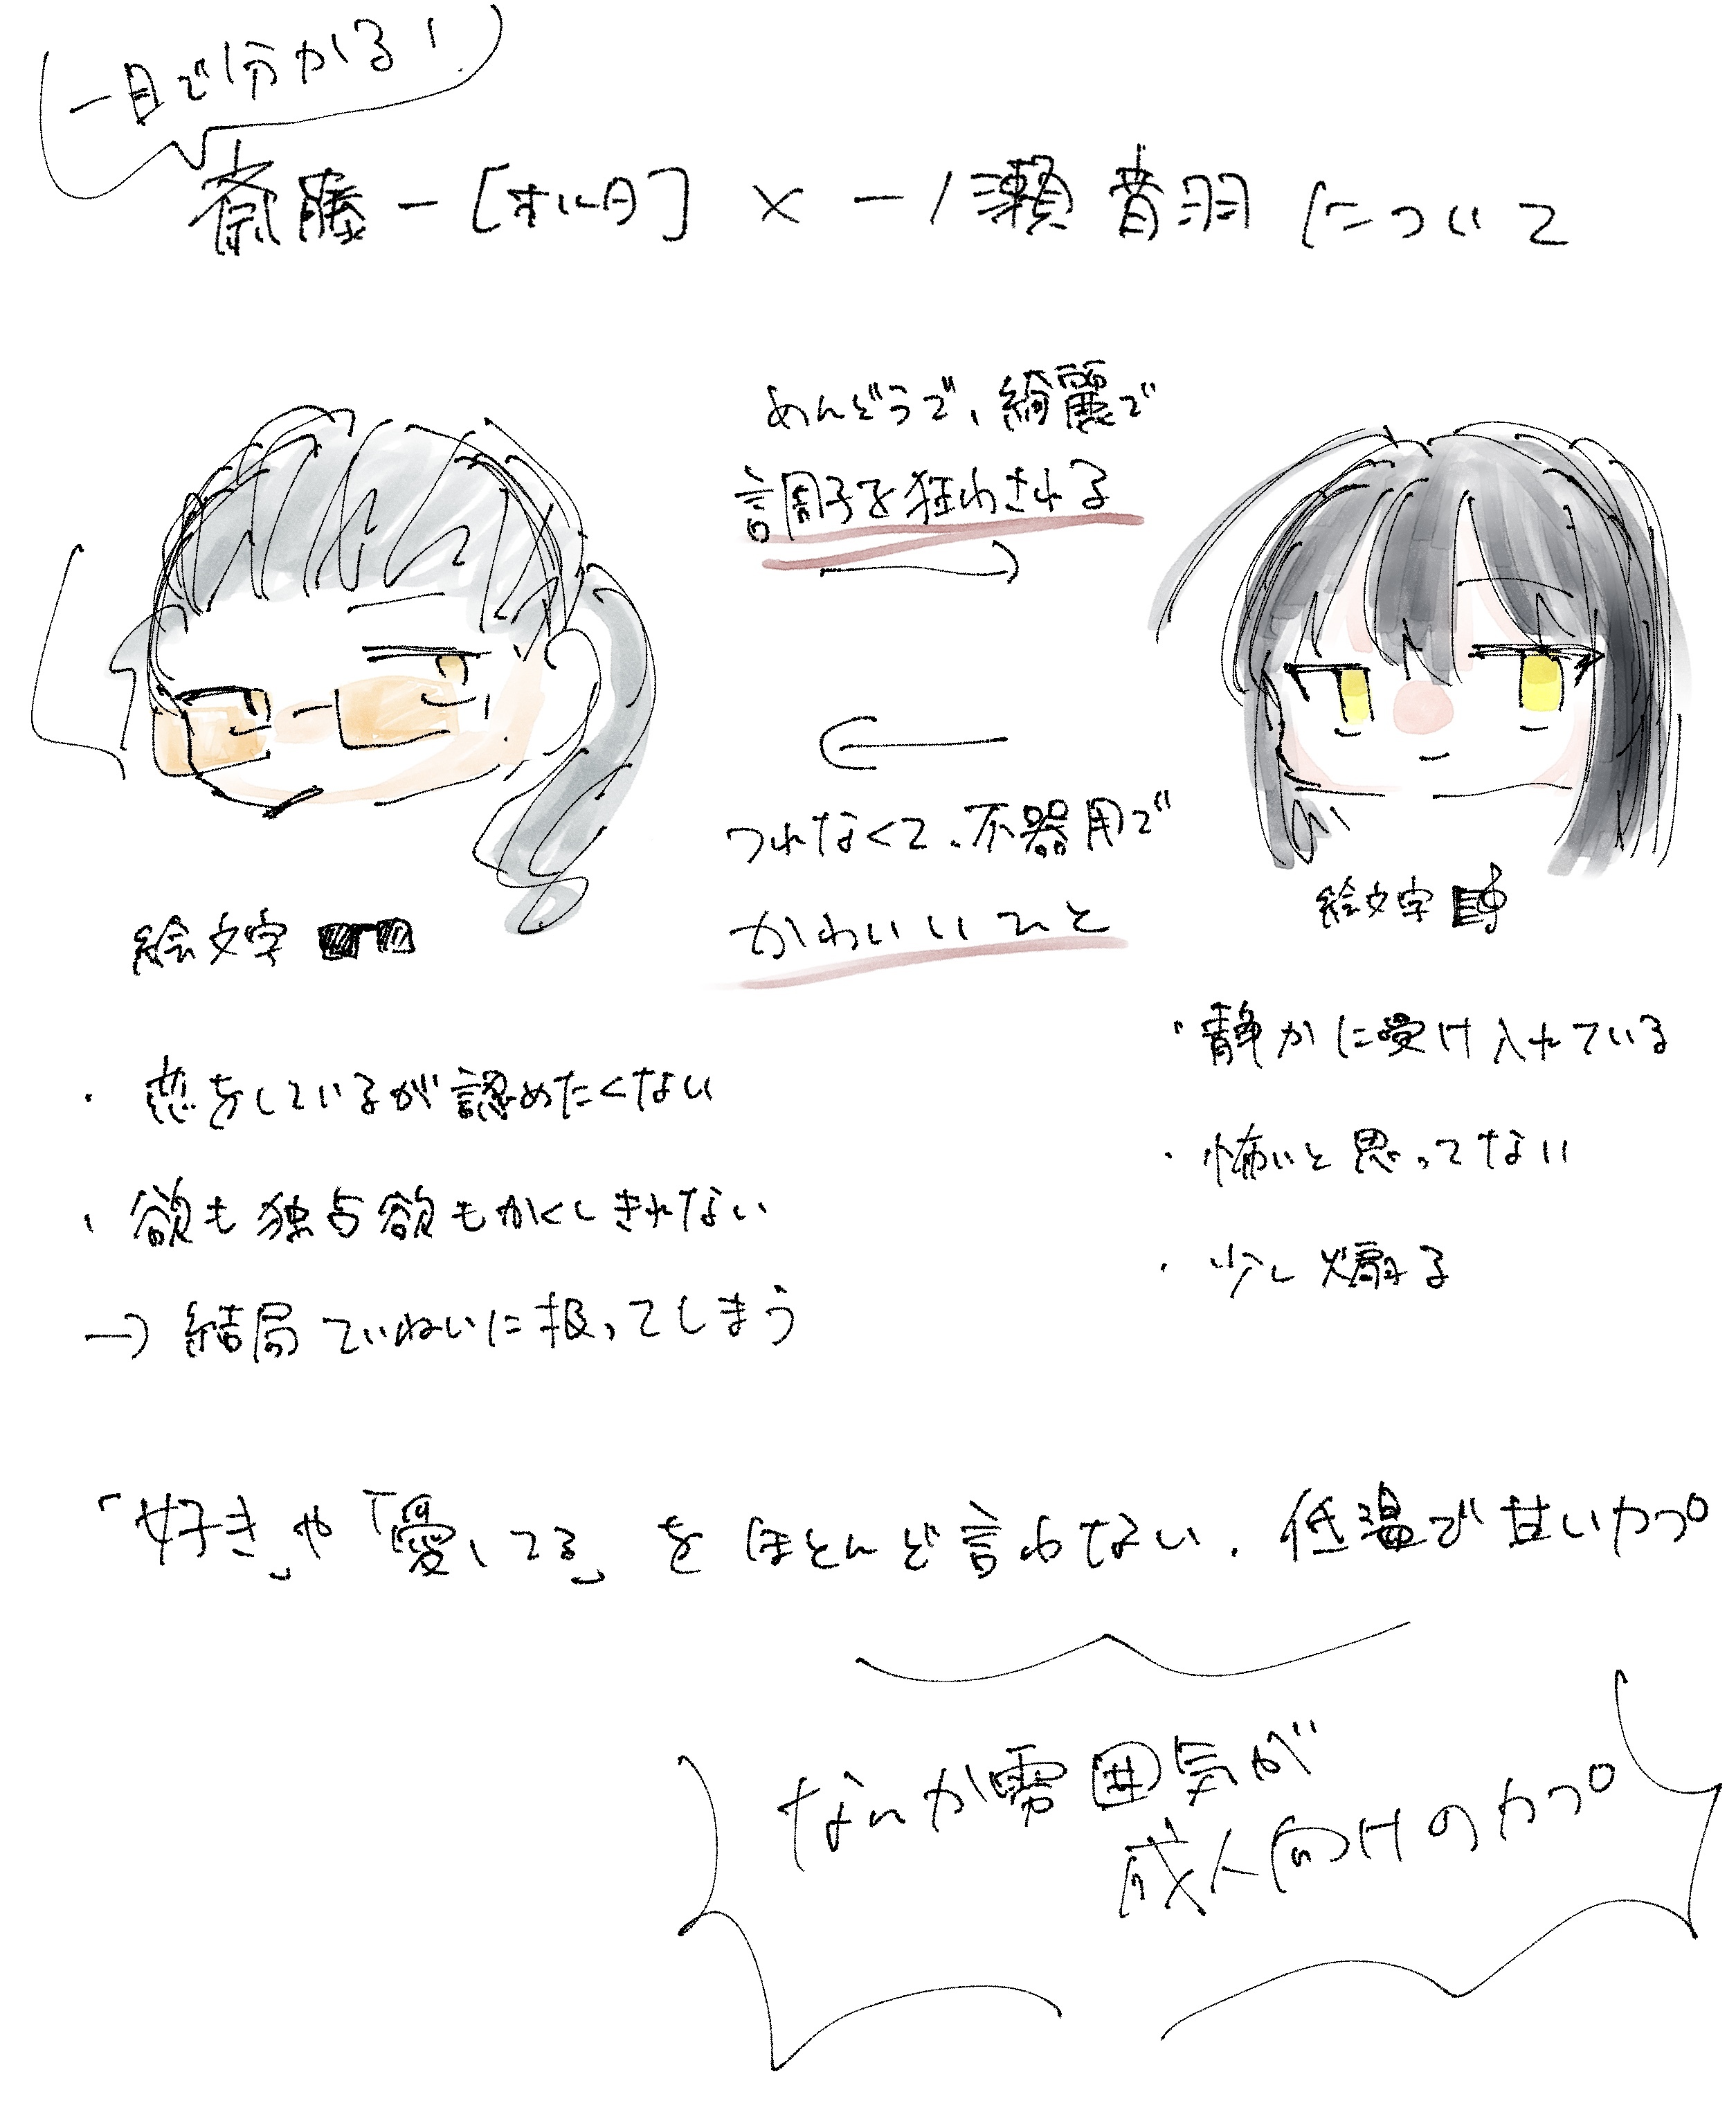 一目で分かる!
斎藤一[オルタ] × 一ノ瀬音羽について
めんどうで、綺麗で
調子を狂わされる
つれなくて、不器用で
かわいいひと
絵文字
絵文字
・恋をしているが認めたくない
・欲も独占欲もかくしきれない
→結局ていねいに扱ってしまう
・静かに受け入れている
・怖いと思ってない
・少し煽る
「好き」や「愛してる」をほとんど言わない、低温で甘いカプ
なんか雰囲気が
成人向けのカプ